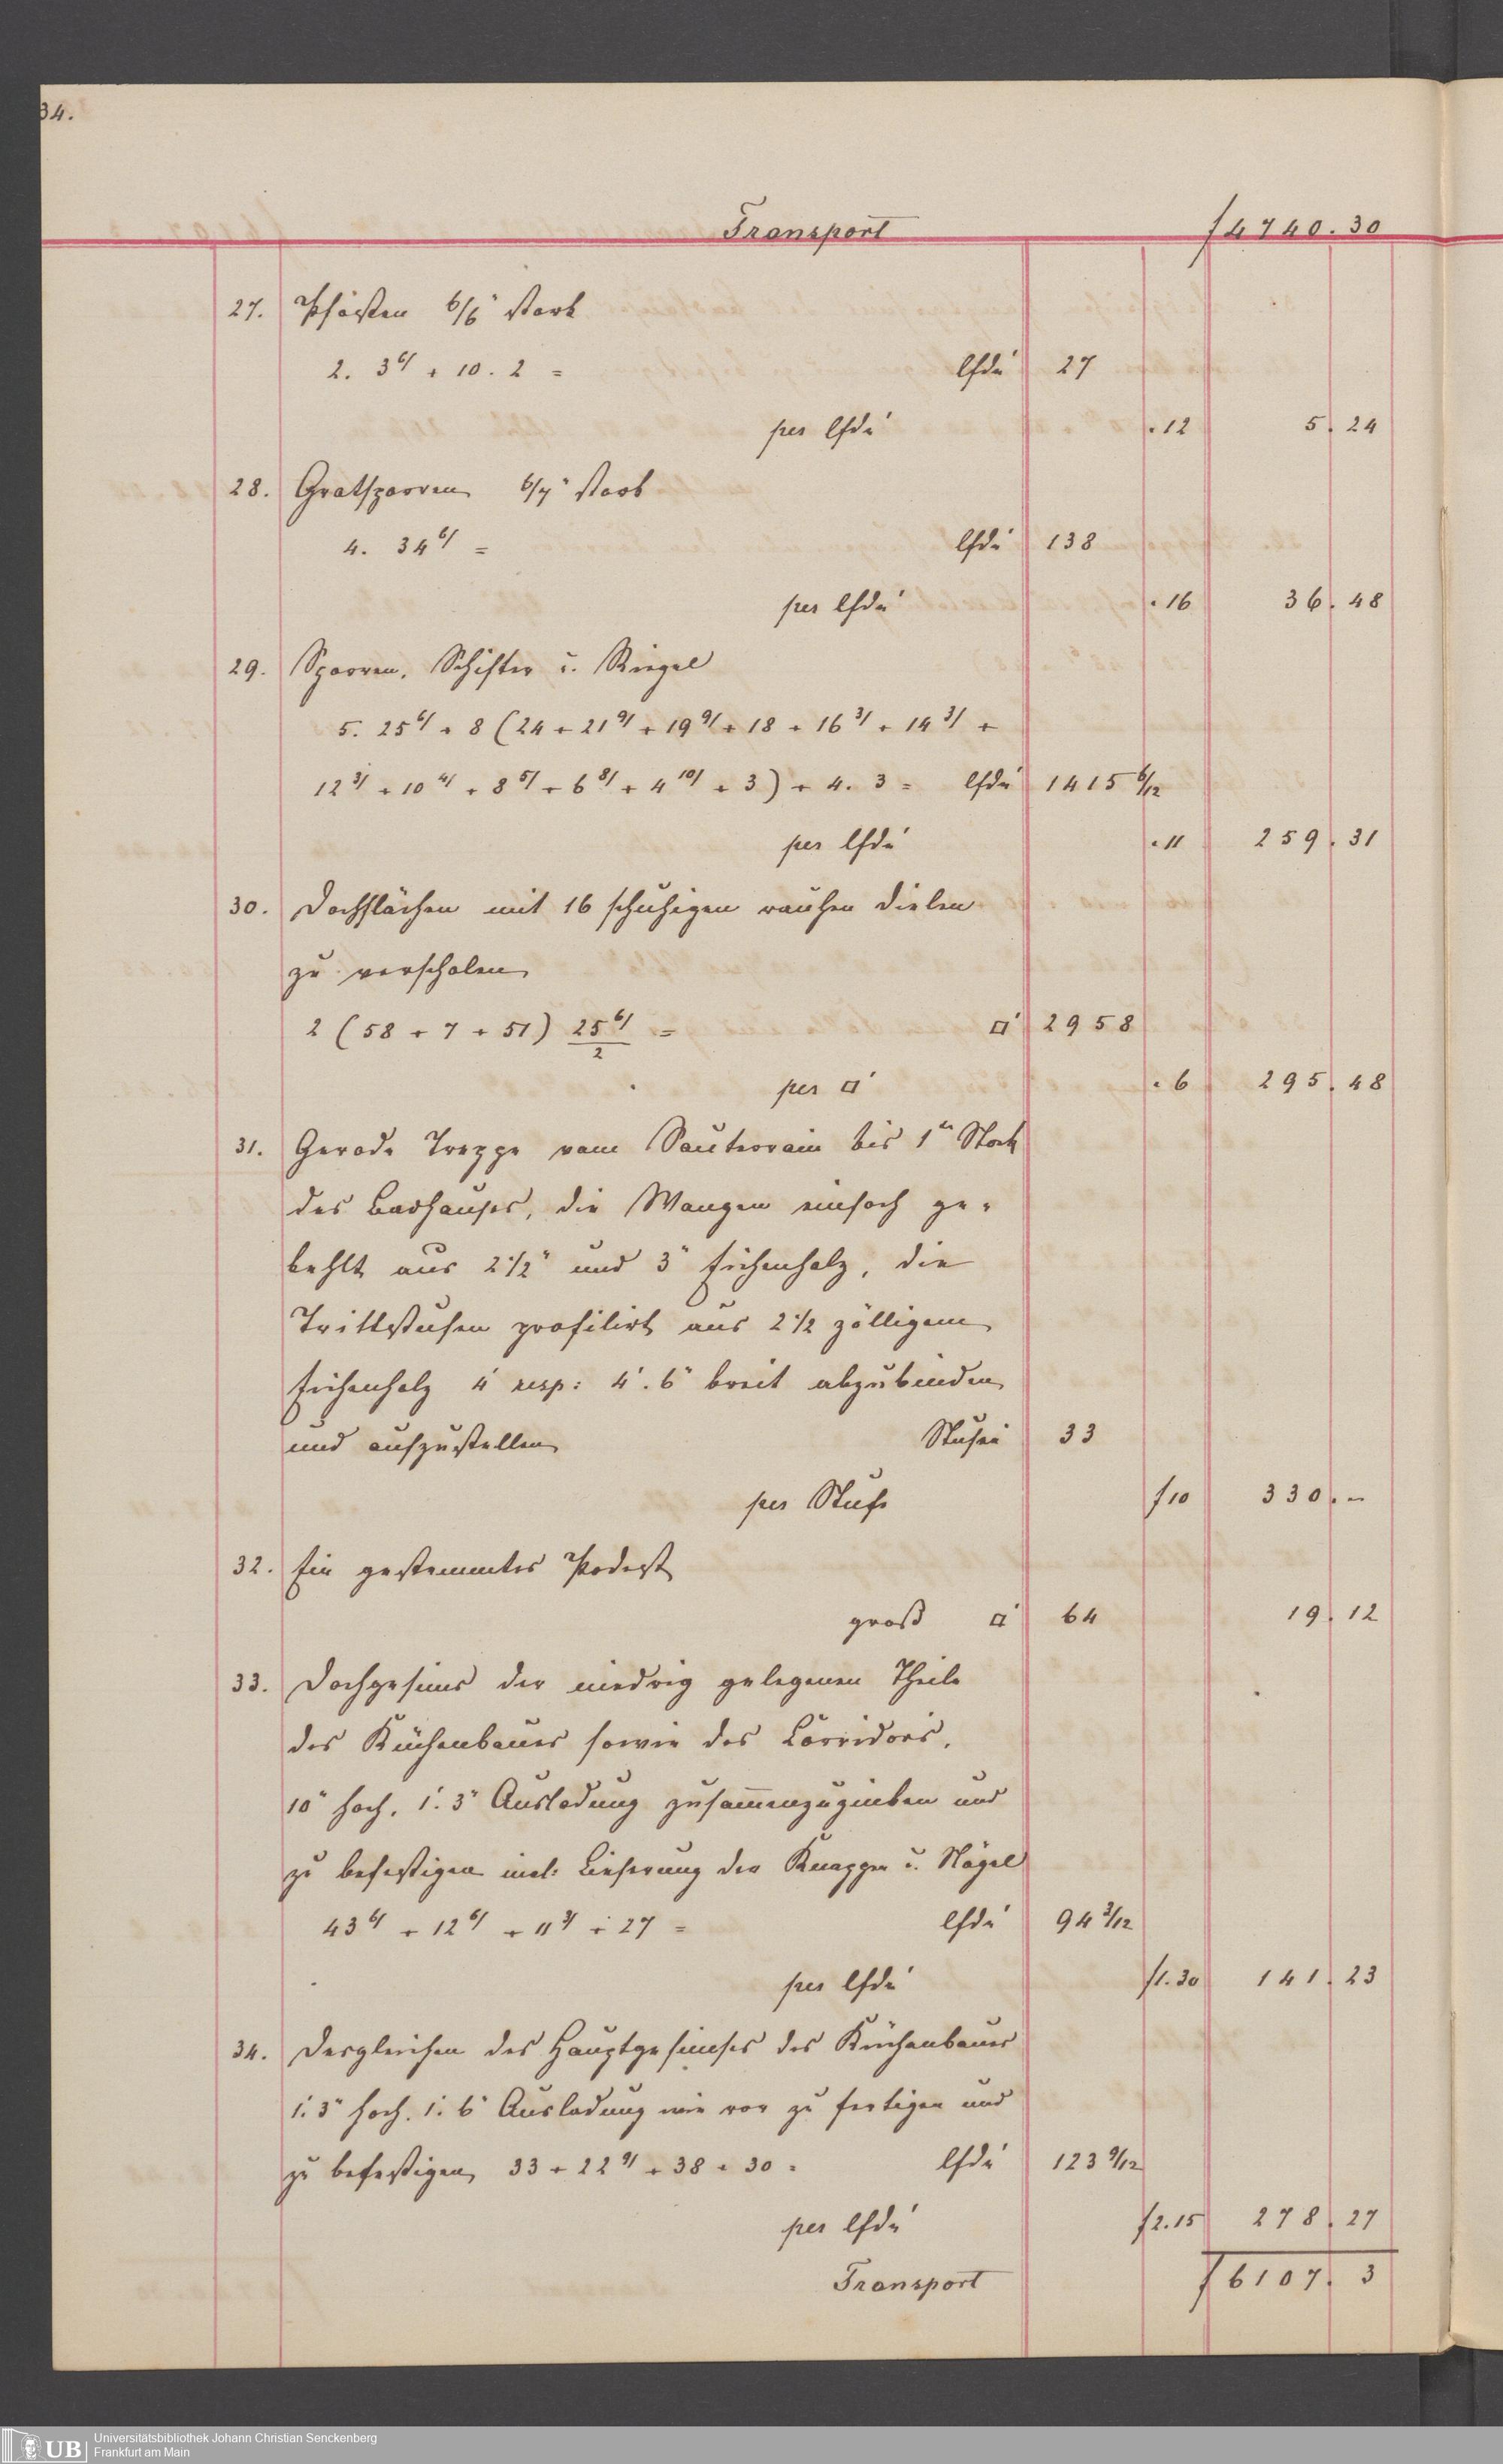 34.
Transport f 4740. 30
27. Pfosten 6/6" stark
2. 3 6/ + 10. 2 = lfde' 27
per lfde' . 12 5. 24
28. Gratsparren 6/7" stark
4. 34 6/ = lfde' 138
per lfde' . 16 36. 48
29. Sparren, Schifter u. Riegel
5. 25 6/ + 8 (24 + 21 9/ + 19 9/ + 18 + 16 3/ + 14 3/ +
12 3/ + 10 4/ + 8 5/ + 6 8/ + 4 10/ + 3) + 4. 3 = lfde' 1415 6/12
per lfde' . 11 259. 31
30. Dachflächen mit 16 schuhigen rauhen Dielen
zu verschalen
2 (58 + 7 + 51) 25 6/ / 2 = □' 2958
per □' . 6 295. 48
31. Gerade Treppe vom Sauterrain bis 1ten Stock
des Badhauses, die Wangen einfach ge-
kehlt aus 2 1/2" und 3" Eichenholz, die
Trittstufen profilirt aus 2 1/2 zölligem
Eichenholz 4' resp: 4'. 6" breit abzubinden
und aufzustellen Stufen 33
per Stufe f 10 330. –
32. Ein gestemmtes Podest
groß □' 64 19. 12
33. Dachgesims der niedrig gelegenen Theile
des Küchenbaues sowie des Corridors,
10" hoch, 1'. 3" Ausladung zusammenzu und
zu befestigen incl: Lieferung der Knaggen u. Nägel
43 6/ + 12 6/ + 11 3/ + 27 = lfde' 94 3/12
per lfde' f 1. 30 141. 23
34. Desgleichen des Hauptgesimses des Küchenbaues
1'. 3" hoch, 1'. 6" Ausladung wie vor zu fertigen und
zu befestigen 33 + 22 9/ + 38 + 30 = lfde' 123 9/12
per lfde' f 2. 15 278. 27
Transport f 6107. 3
UB Universitätsbibliothek Johann Christian Senckenberg
Frankfurt am Main